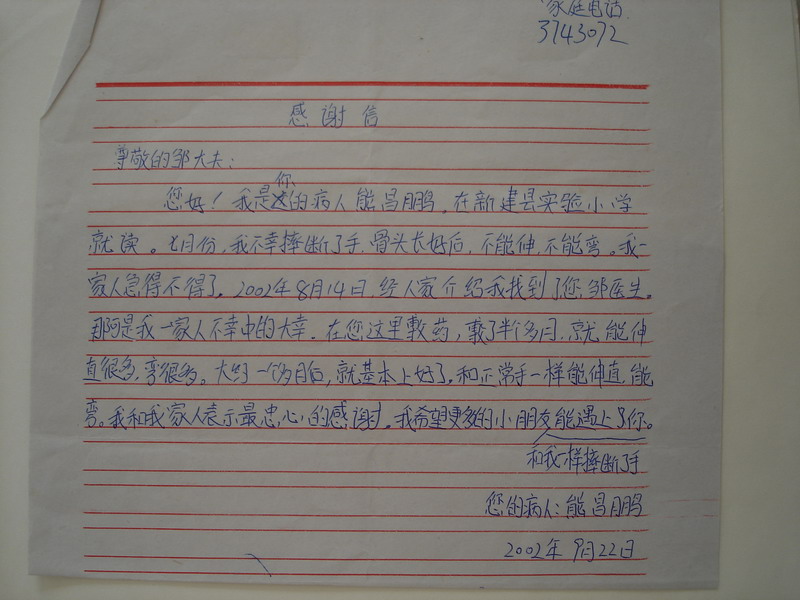 家庭电话
3743072
感谢信
尊敬的邹大夫：
您好！我是你的病人熊昌鹏，在新建县实验小学
就读。七月份，我不幸摔断了手，骨头长好后，不能伸，不能弯。我一
家人急得不得了。2002年8月14日，经人家介绍我找到了您，邹医生。
那阿是我一家人不幸中的大幸。在您这里敷药，敷了半个多月，就能伸
直很多，弯很多。大约一个多月后，就基本上好了，和正常手一样能伸直，能
弯。我和我家人表示最忠心的感谢。我希望更多的小朋友能遇上了你。
和我一样摔断了手
您的病人：熊昌鹏
2002年9月22日